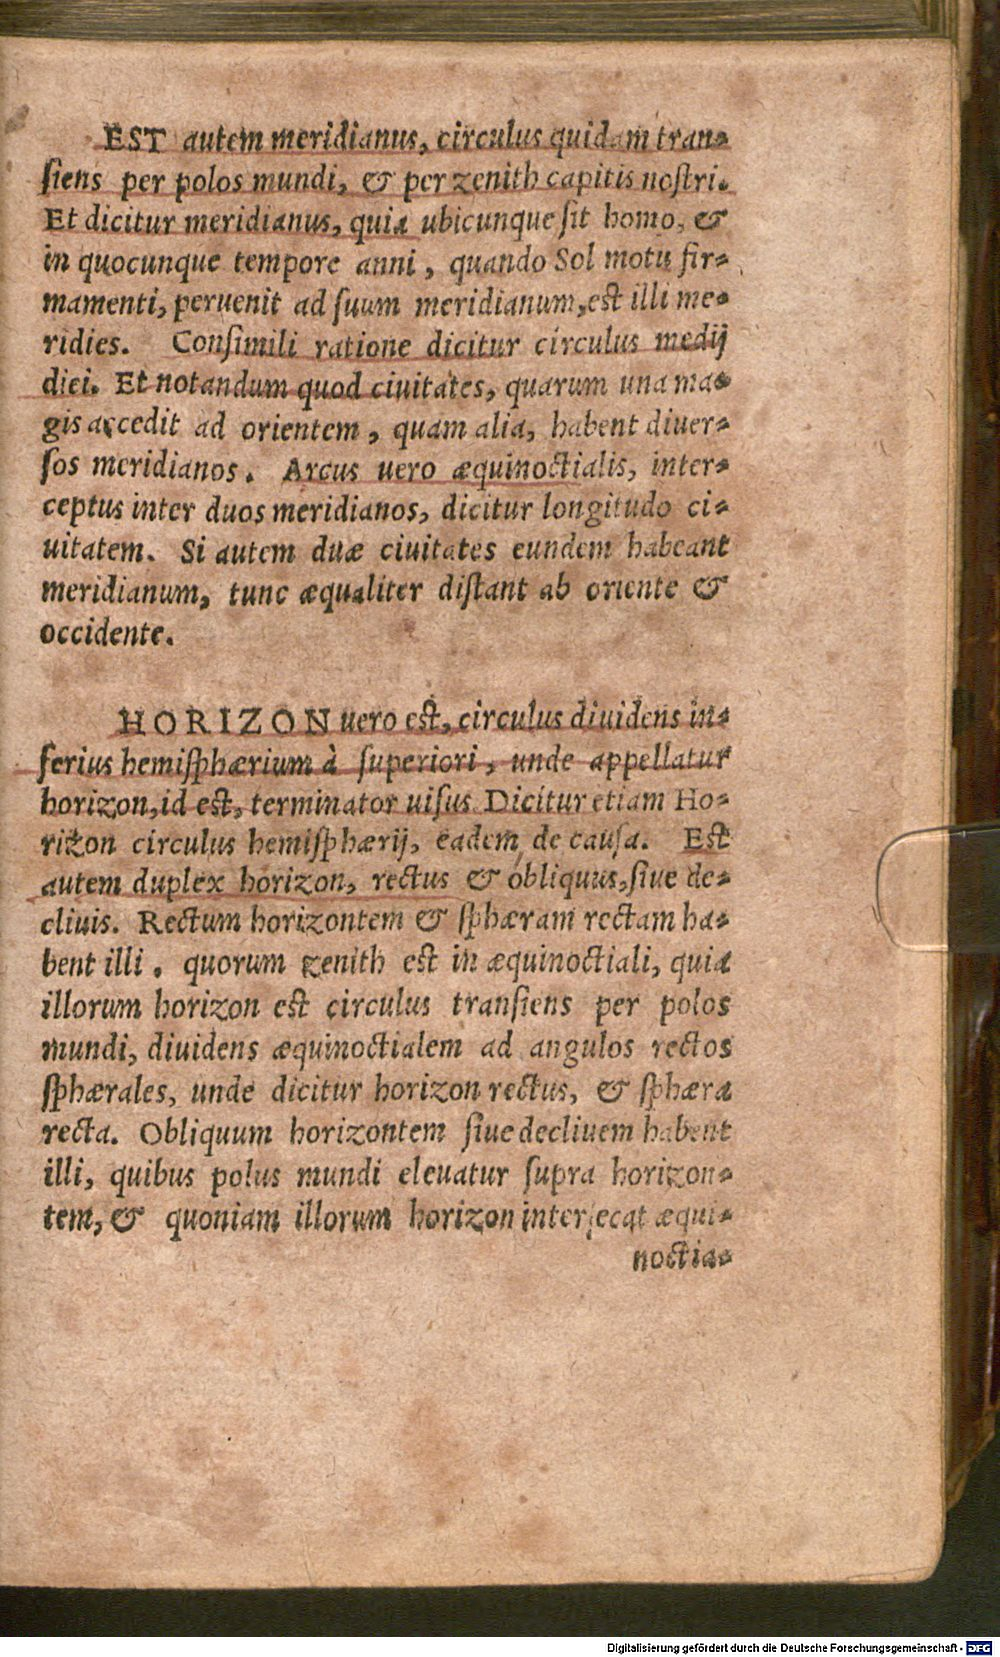 EST autem meridianus, circulus quidam tran-
siens per polos mundi, & per zenith capitis nostri.
Et dicitur meridianus, quia ubicunque sit homo, &
in quocunque tempore anni, quando Sol motu fir-
mamenti, peruenit ad suum meridianum, est illi me-
ridies. Consimili ratione dicitur circulus medij
diei. Et notandum quod ciuitates, quarum una ma-
gis accedit ad orientem, quam alia, habent diuer-
sos meridianos. Arcus uero æquinoctialis, inter-
ceptus inter duos meridianos, dicitur longitudo ci-
uitatem. Si autem duæ ciuitates eundem habeant
meridianum, tunc æqualiter distant ab oriente &
occidente.
HORIZON uero est, circulus diuidens in-
ferius hemisphærium à superiori, unde appellatur
horizon, id est, terminator uisus. Dicitur etiam Ho-
rizon circulus hemisphærij, eadem de causa. Est
autem duplex horizon, rectus & obliquus, siue de-
cliuis. Rectum horizontem & sphæram rectam ha-
bent illi. quorum zenith est in æquinoctiali, quia
illorum horizon est circulus transiens per polos
mundi, diuidens æquinoctialem ad angulos rectos
sphærales, unde dicitur horizon rectus, & sphæra
recta. Obliquum horizontem siue decliuem habent
illi, quibus polus mundi eleuatur supra horizon-
tem, & quoniam illorum horizon intersecat æqui-
noctia-
Digitalisierung gefördert durch die Deutsche Forschungsgemeinschaft - DFG